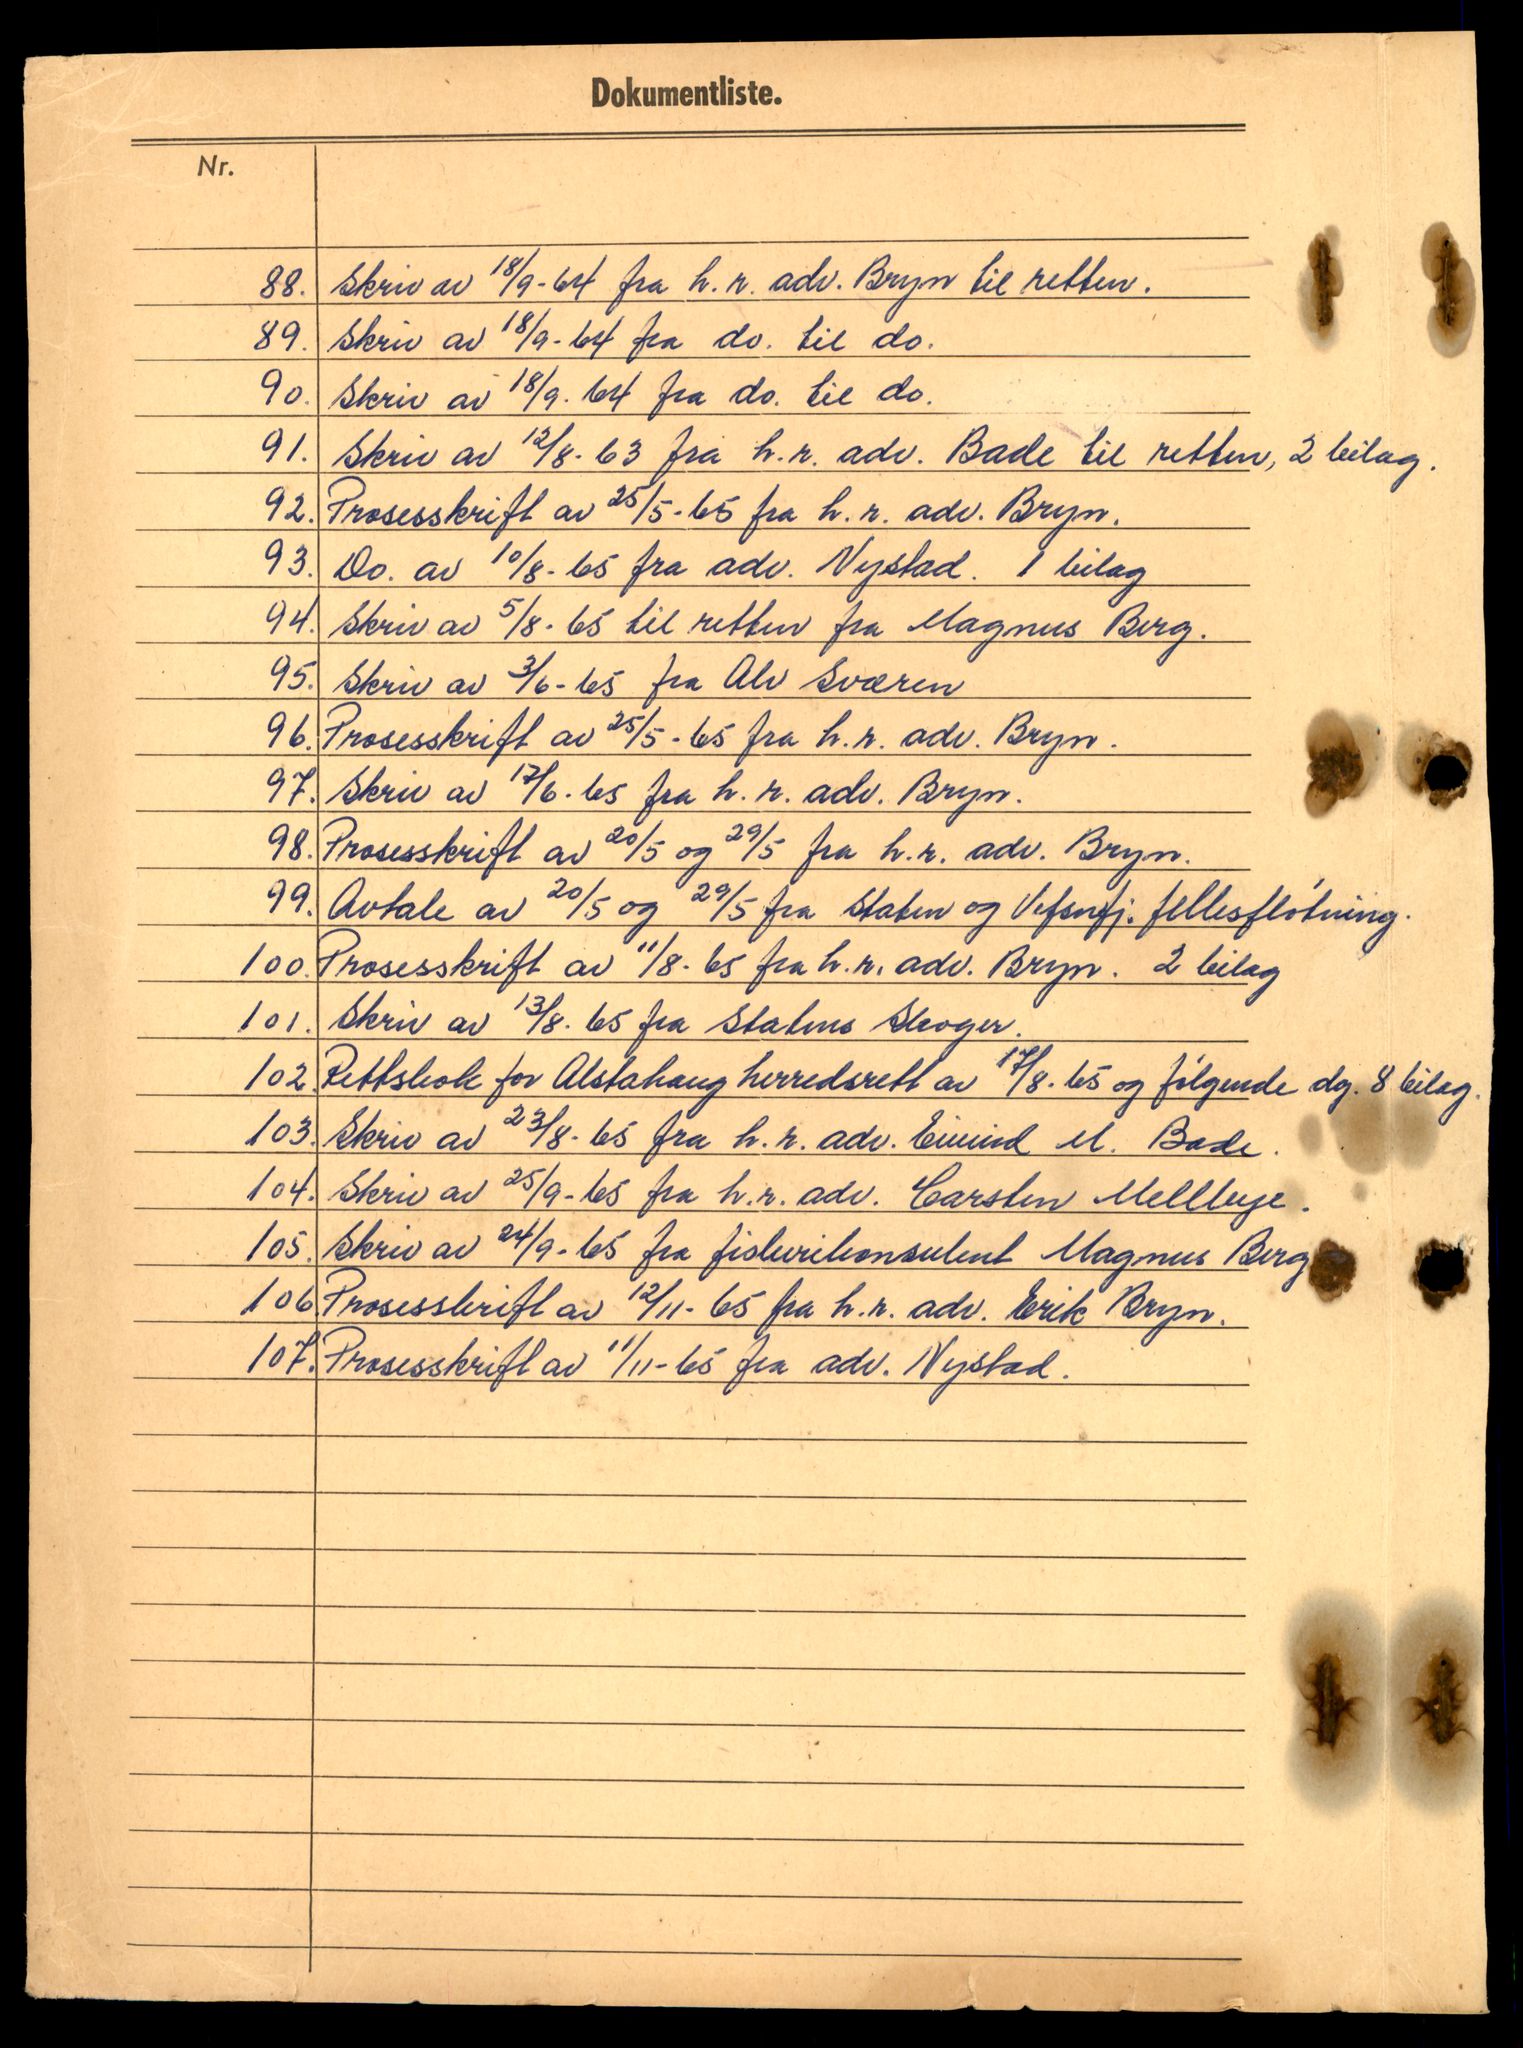 Dokumentliste.
Nr.
88. Skriv av 18/9-64 fra h.r. adv. Bryn til retten.
89. Skriv av 18/9-64 fra do. til do.
90. Skriv av 18/9.64 fra do. til do.
91. Skriv av 12/8-63 fra h.r. adv. Bade til retten, 2 bilag.
92. Prosesskrift av 25/5-65 fra h.r. adv. Bryn.
93. Do. av 10/8-65 fra adv. Nystad. 1 bilag
94. Skriv av 5/8-65 til retten fra Magnus Berg.
95. Skriv av 3/6-65 fra Alv Sværen
96. Prosesskrift av 25/5-65 fra h.r. adv. Bryn.
97. Skriv av 17/6-65 fra h.r. adv. Bryn.
98. Prosesskrift av 20/5 og 29/5 fra h.r. adv. Bryn.
99. Avtale av 20/5 og 29/5 fra Staten og Vefsnfj. fellesfløtning.
100. Prosesskrift av 11/8-65 fra h.r. adv. Bryn. 2 bilag
101. Skriv av 13/8-65 fra Statens Skoger.
102. Rettsbok for Alstahaug herredsrett av 17/8-65 og følgende dg. 8 bilag.
103. Skriv av 23/8-65 fra h.r. adv. Eivind M. Bade.
104. Skriv av 25/9-65 fra h.r. adv. Carsten Mellbye.
105. Skriv av 24/9-65 fra fiskerikonsulent Magnus Berg
106. Prosesskrift av 12/11-65 fra h.r. adv. Erik Bryn.
107. Prosesskrift av 11/11-65 fra adv. Nystad.